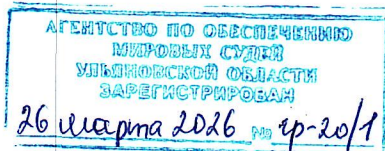 АГЕНТСТВО ПО ОБЕСПЕЧЕНИЮ
МИРОВЫХ СУДЕЙ
УЛЬЯНОВСКОЙ ОБЛАСТИ
ЗАРЕГИСТРИРОВАН
26 марта 2026 № гр-20/1